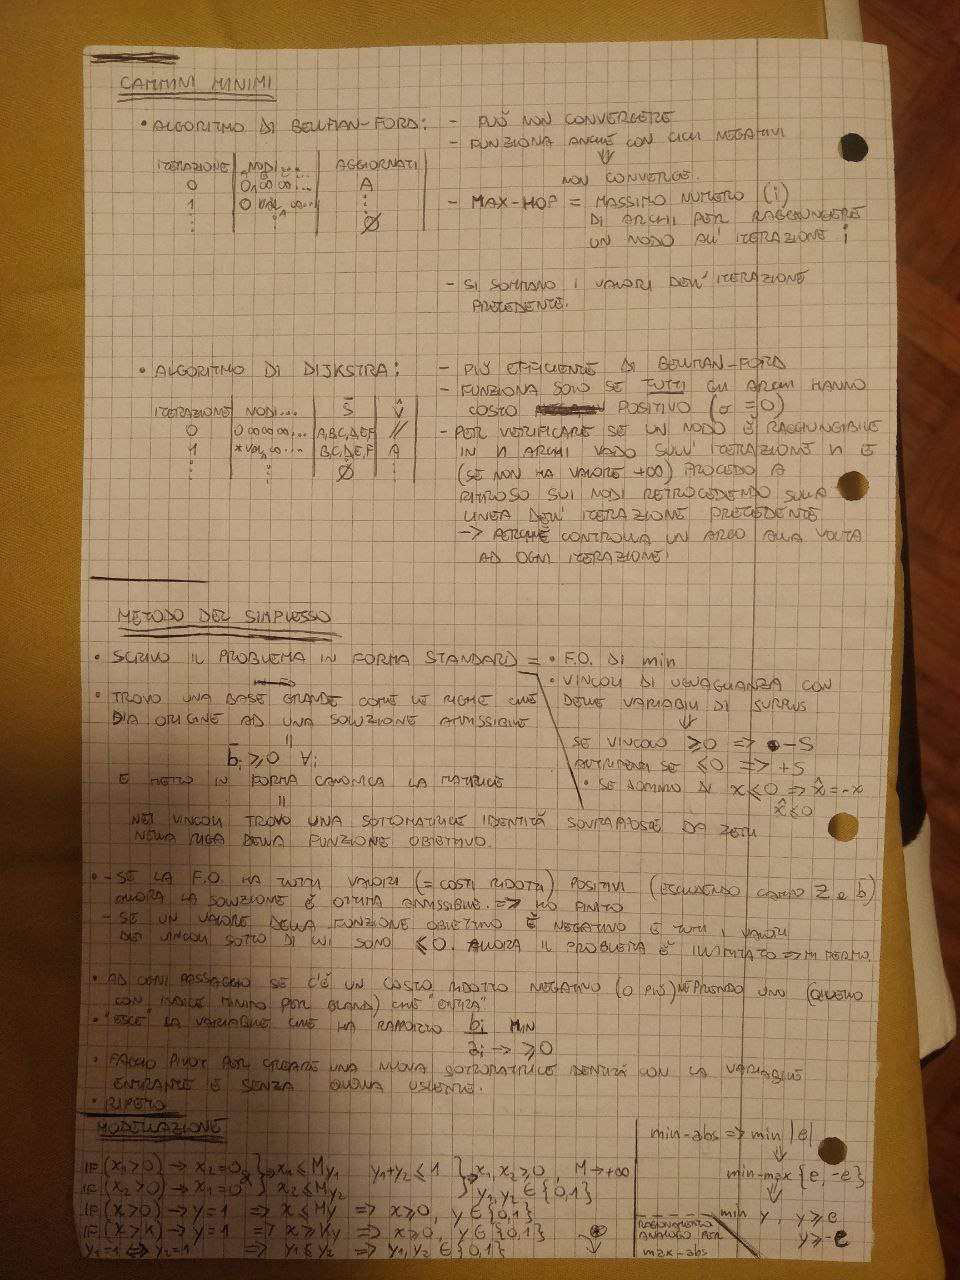 CAMMINI MINIMI
• ALGORITMO DI BELLMAN-FORD:
- PUÒ NON CONVERGERE
- FUNZIONA ANCHE CON CICLI NEGATIVI
⇓
NON CONVERGE.
ITERAZIONE | NODI ... | AGGIORNATI
0 | 0 ∞ ∞ ... | A
1 | 0 VAL ∞ ... | ⋮
⋮ | ⋮ | Ø
- MAX-HOP = MASSIMO NUMERO (i)
DI ARCHI PER RAGGIUNGERE
UN NODO ALL' ITERAZIONE i
- SI SOMMANO I VALORI DELL' ITERAZIONE
PRECEDENTE.
• ALGORITMO DI DIJKSTRA:
- PIÙ EFFICIENTE DI BELLMAN-FORD
- FUNZIONA SOLO SE TUTTI GLI ARCHI HANNO
COSTO POSITIVO (O = 0)
ITERAZIONE | NODI... | S̄ | V̂
0 | 0 ∞ ∞ ∞ ... | A,B,C,D,E,F | //
1 | * VAL ∞ ... | B,C,D,E,F | A
⋮ | ⋮ | Ø | ⋮
- PER VERIFICARE SE UN NODO È RAGGIUNGIBILE
IN n ARCHI VADO SULL' ITERAZIONE n E
(SE NON HA VALORE +∞) PROCEDO A
RITROSO SUI NODI RETROCEDENDO SULLA
LINEA DELL' ITERAZIONE PRECEDENTE
-> PERCHÈ CONTROLLA UN ARCO ALLA VOLTA
AD OGNI ITERAZIONE!
METODO DEL SIMPLESSO
• SCRIVO IL PROBLEMA IN FORMA STANDARD = • F.O. DI min
• VINCOLI DI UGUAGLIANZA CON
DELLE VARIABILI DI SURPLUS
⇓
SE VINCOLO ≥0 => -S
ALTRIMENTI SE ≤0 => +S
• SE DOMINIO DI x≤0 => x̂=-x
x̂≤0
• TROVO UNA BASE GRANDE COME LE RIGHE CHE
DIA ORIGINE AD UNA SOLUZIONE AMMISSIBILE
||
b̄i ≥0 ∀i
E METTO IN FORMA CANONICA LA MATRICE
||
NEI VINCOLI TROVO UNA SOTTOMATRICE IDENTITÀ SOVRAPPOSTE DA ZERI
NELLA RIGA DELLA FUNZIONE OBIETTIVO.
• - SE LA F.O. HA TUTTI VALORI (= COSTI RIDOTTI) POSITIVI (ESCLUDENDO CAMPO Z e b)
ALLORA LA SOLUZIONE È OTTIMA AMMISSIBILE. => HO FINITO
- SE UN VALORE DELLA FUNZIONE OBIETTIVO È NEGATIVO E TUTTI I VALORI
DEI VINCOLI SOTTO DI LUI SONO ≤0. ALLORA IL PROBLEMA È ILLIMITATO => MI FERMO.
• AD OGNI PASSAGGIO SE C'È UN COSTO RIDOTTO NEGATIVO (O PIÙ) NE PRENDO UNO (QUELLO
CON INDICE MINIMO PER BLAND) CHE "ENTRA"
• "ESCE" LA VARIABILE CHE HA RAPPORTO bi MIN
ai -> ≥0
• FACCIO PIVOT PER CREARE UNA NUOVA SOTTOMATRICE IDENTITÀ CON LA VARIABILE
ENTRANTE E SENZA QUELLA USCENTE.
• RIPETO
MODELLAZIONE
IF (x1>0) -> x2=0 } => x1≤My1 y1+y2≤1 } => x1,x2≥0, M->+∞
IF (x2>0) -> x1=0 } x2≤My2 } y1,y2∈{0,1}
IF (x>0) -> y=1 => x≤My => x≥0, y∈{0,1}
IF (x>k) -> y=1 => x≥Ky => x≥0, y∈{0,1}
y1=1 <=> y2=1 => y1≤y2 => y1,y2∈{0,1}
min-abs => min |e|
⇓
min-max{e,-e}
⇓
min y, y≥e
y≥-e
RAGIONAMENTO
ANALOGO PER
max-abs